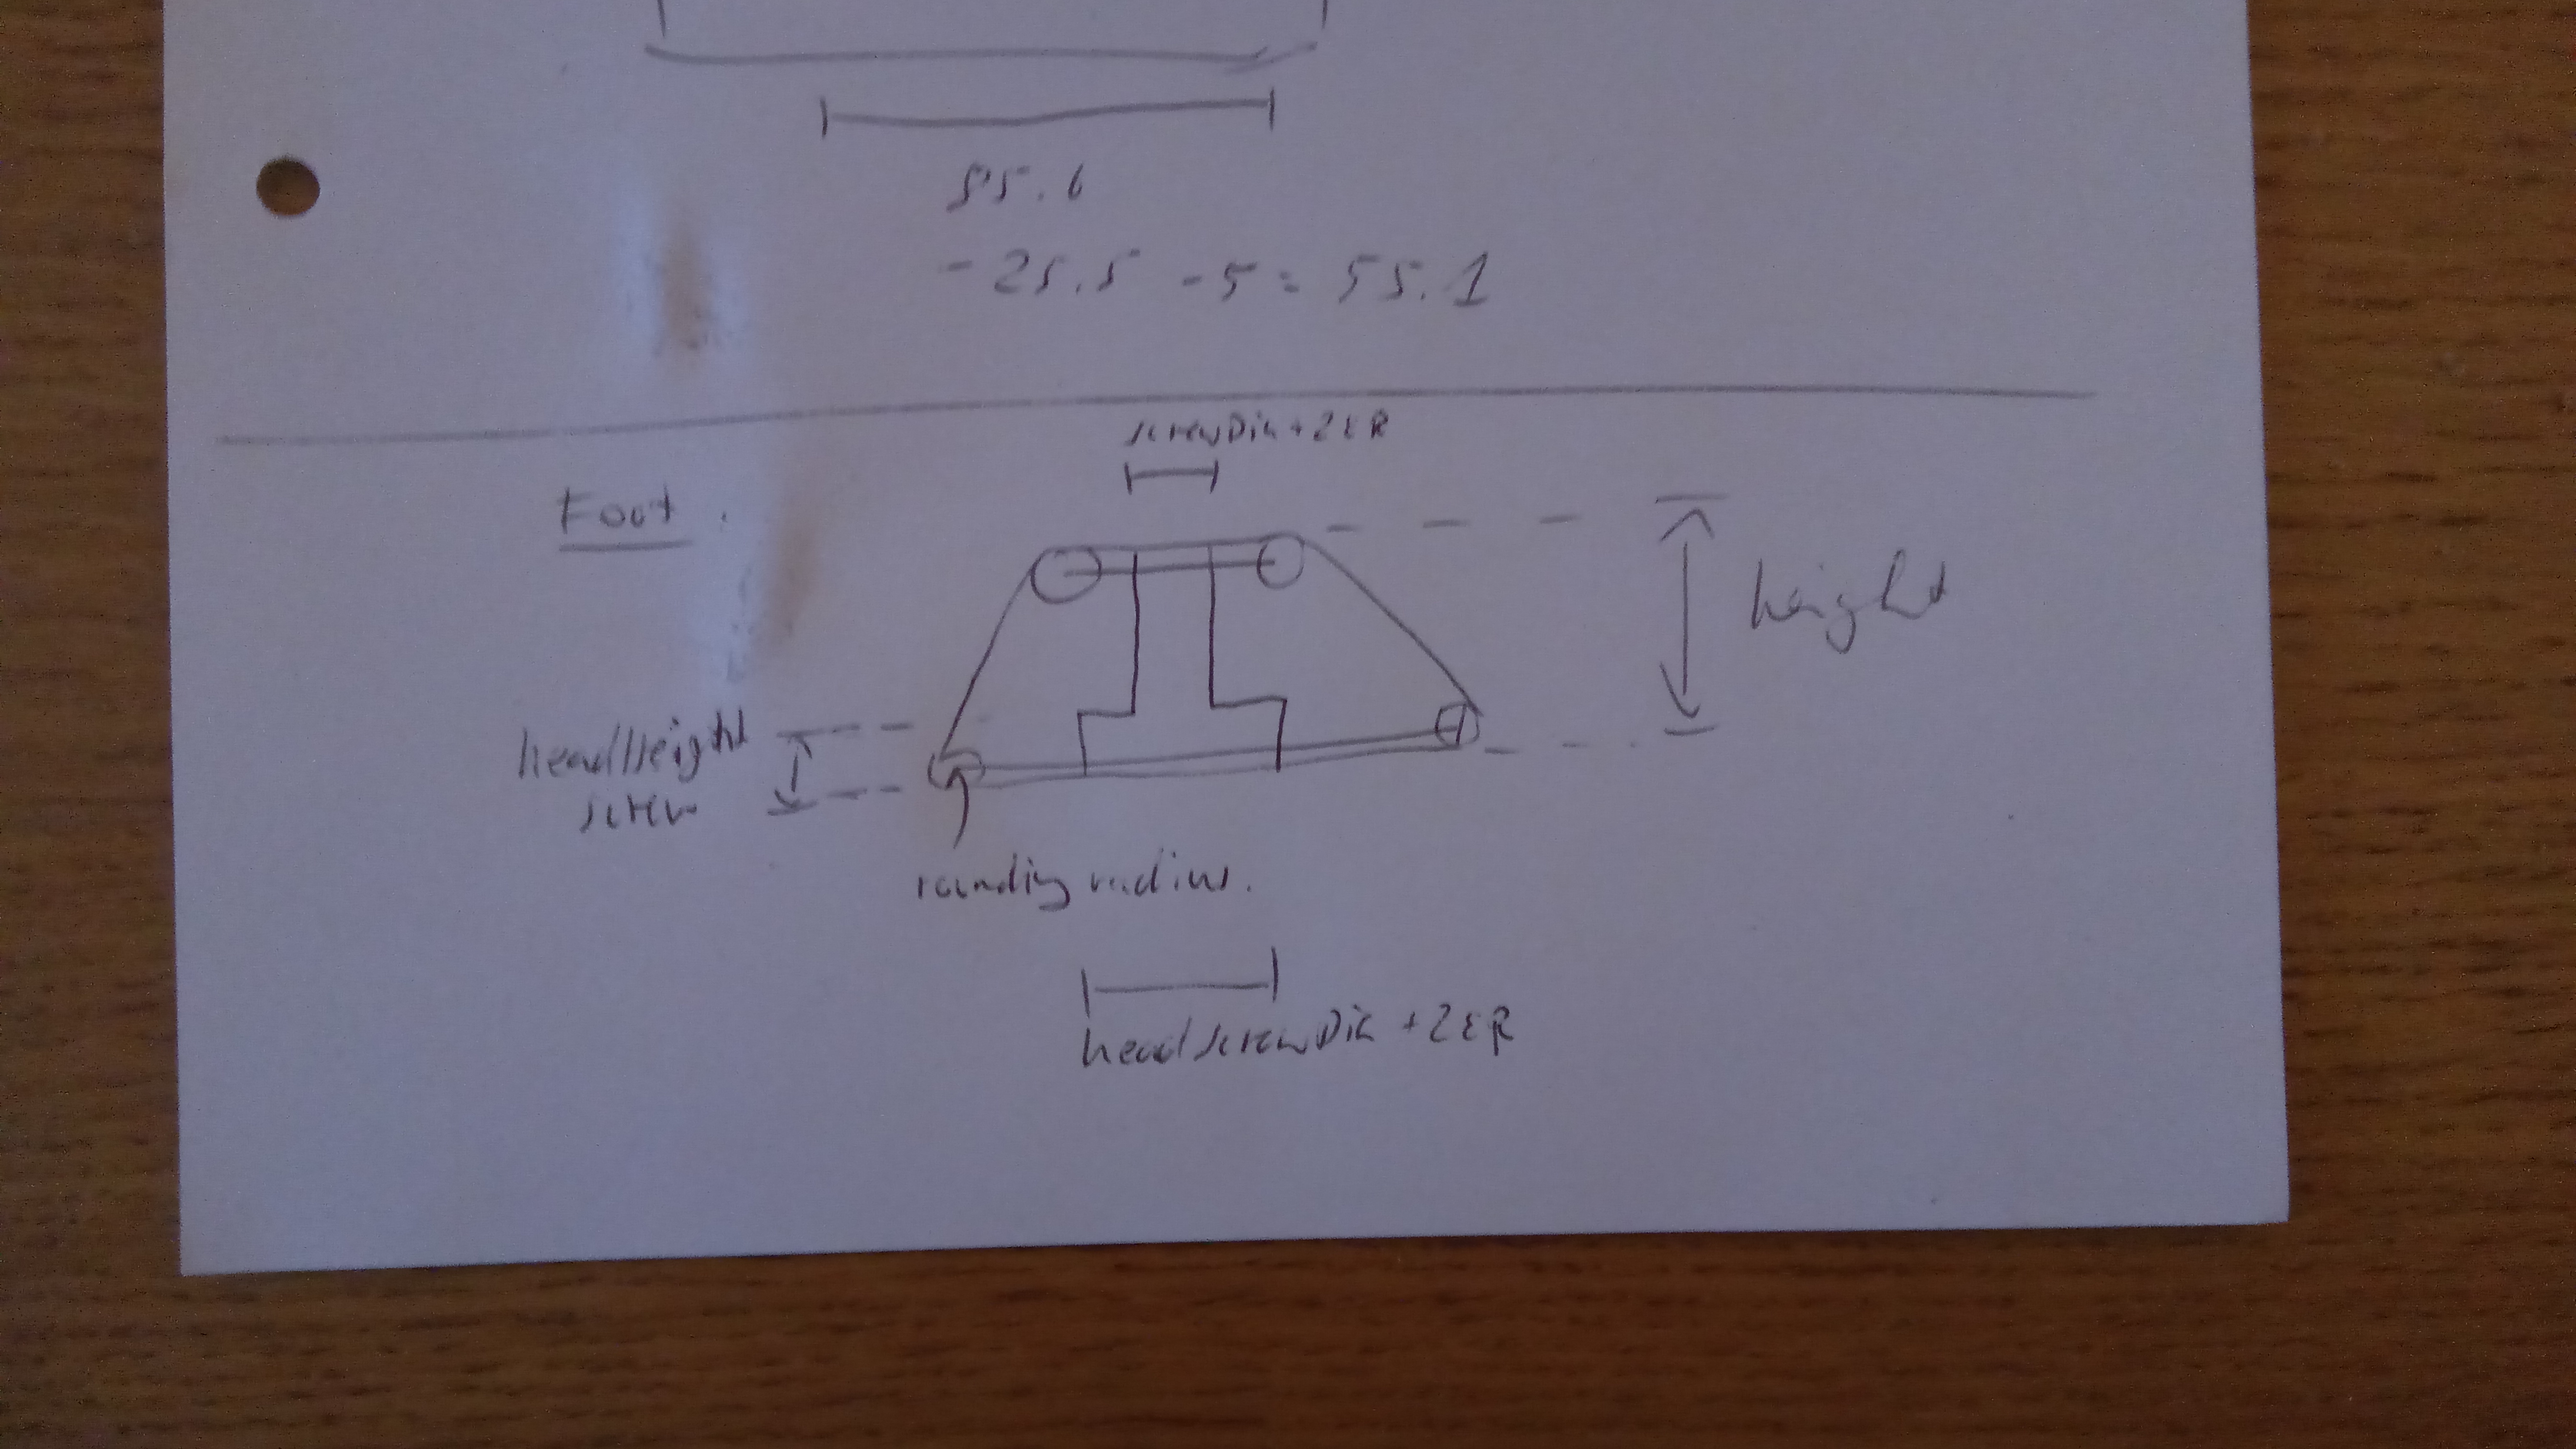 85.6
-25.5 -5 = 55.1
screwDia + 2εR
Foot.
height
headHeight
screw
rounding radius.
headscrewDia + 2εR